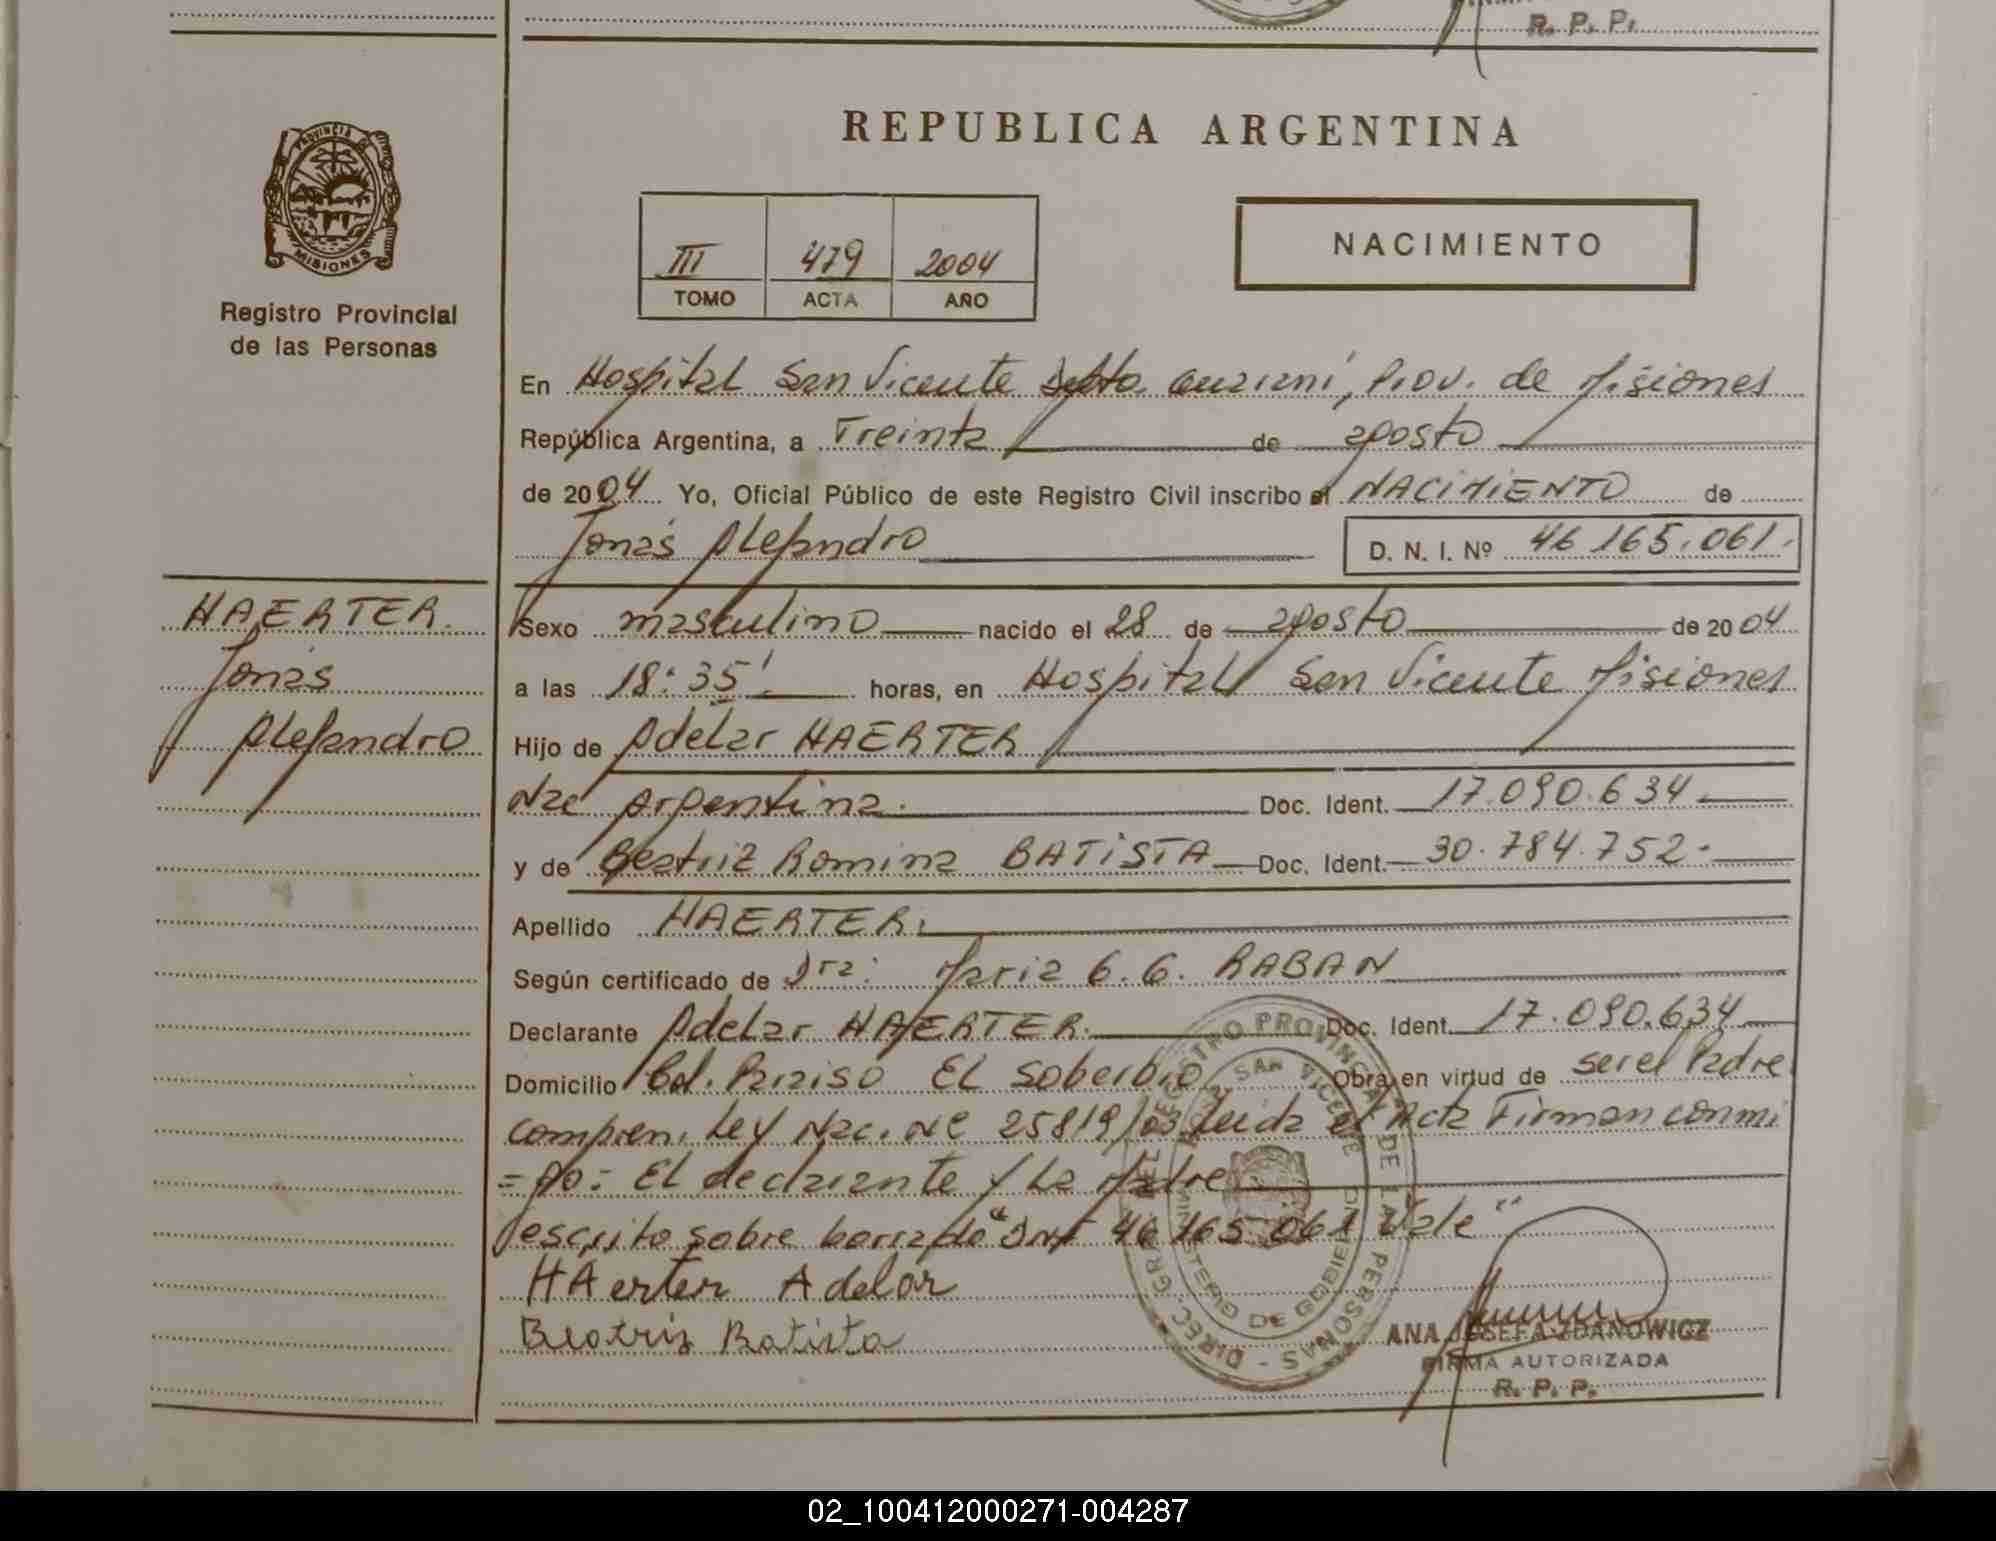 R. P. P.
REPUBLICA ARGENTINA
PROVINCIA DE
MISIONES
Registro Provincial
de las Personas
III 479 2004
TOMO ACTA AÑO
NACIMIENTO
En Hospital San Vicente Dpto. Guaraní, Prov. de Misiones
República Argentina, a Treinta de agosto
de 2004 Yo, Oficial Público de este Registro Civil inscribo el NACIMIENTO de
Jonás Alejandro
D. N. I. Nº 46 165.061.
HAERTER.
Jonás
Alejandro
Sexo masculino nacido el 28 de agosto de 2004
a las 18:35' horas, en Hospital San Vicente Misiones
Hijo de Adelar HAERTER
Nac Argentina. Doc. Ident. 17.090.634
y de Beatriz Romina BATISTA Doc. Ident. 30.784.752.
Apellido HAERTER.
Según certificado de Dra: Maria G. G. RABAN
Declarante Adelar HAERTER. Doc. Ident. 17.090.634
Domicilio Col. Paraiso EL Soberbio Obra en virtud de ser el Padre
compren. Ley Nac. Nº 25819/03 Leida el Acta Firman conmi
=go= El declarante y La Madre
escrito sobre borrado "DNI 46 165 061 Vale"
HAerter Adelar
Beatriz Batista
ANA JOSEFA ZDANOWICZ
FIRMA AUTORIZADA
R. P. P.
DIREC. GRAL. DEL REGISTRO PROVINCIAL DE LAS PERSONAS
SAN VICENTE
MINISTERIO DE GOBIERNO
02_100412000271-004287